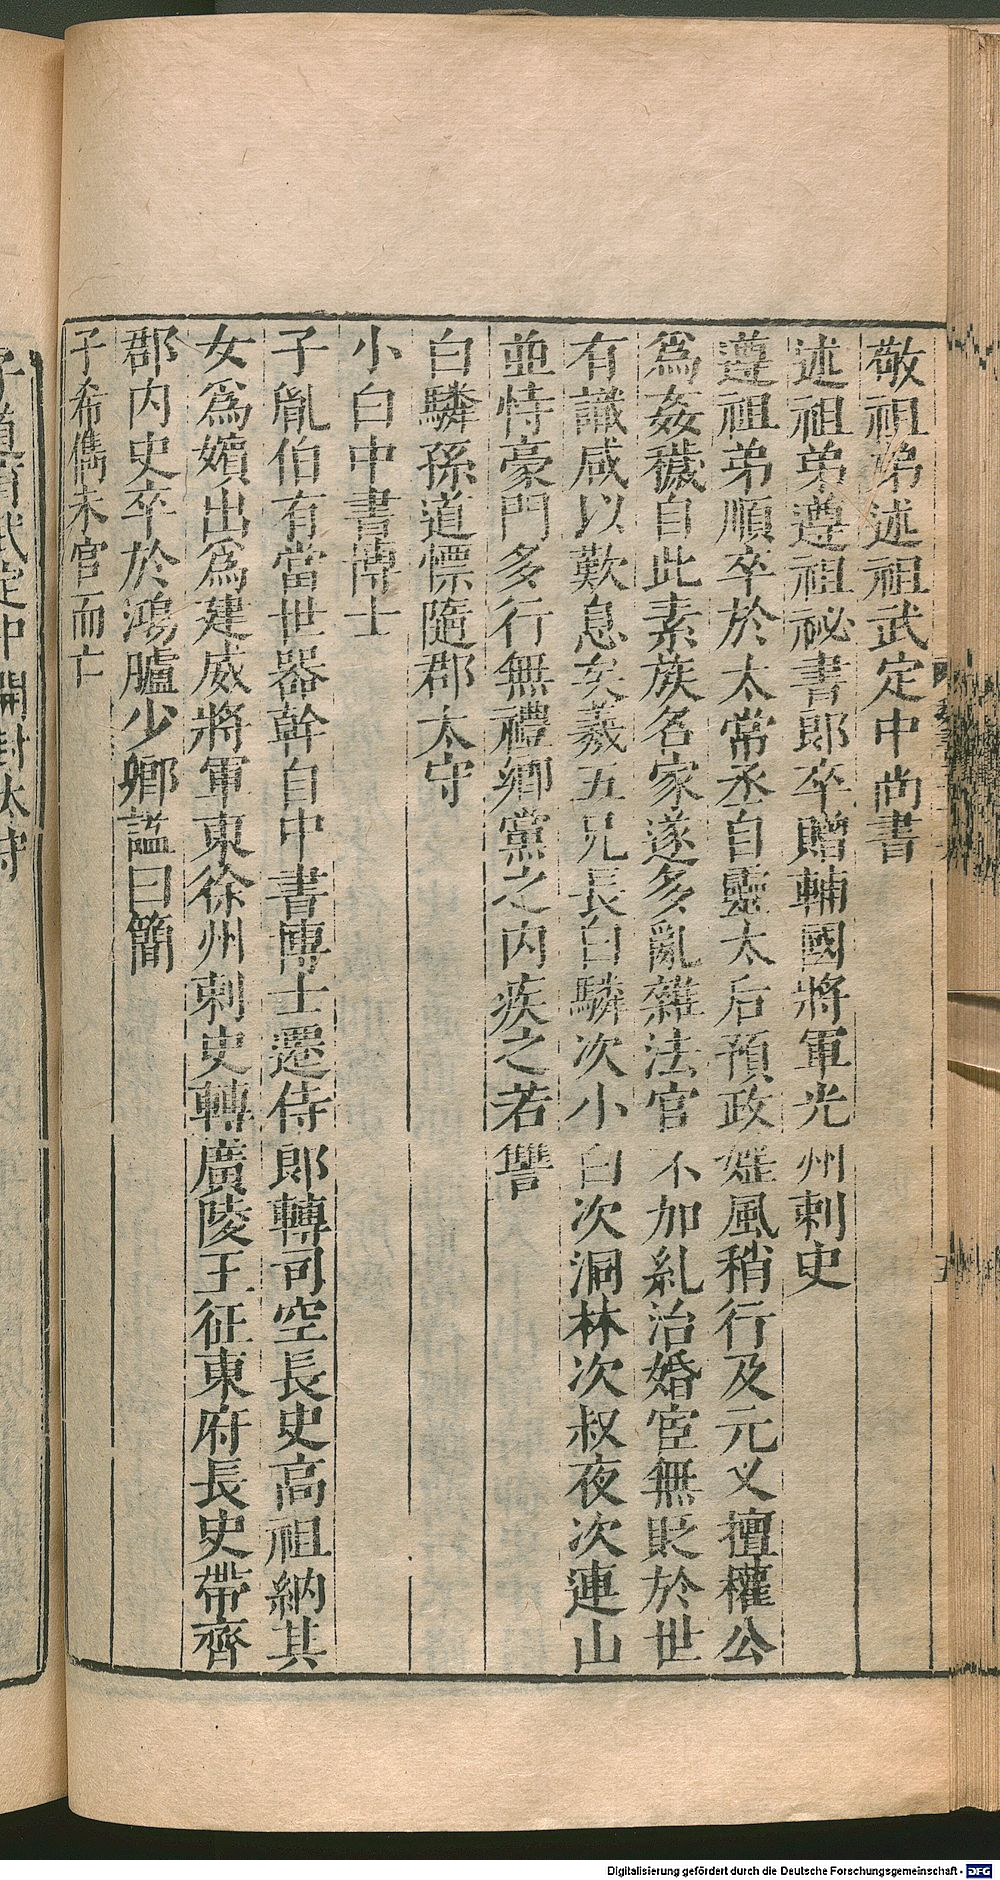 敬祖弟述祖武定中尚書
述祖弟遵祖祕書郎卒贈輔國將軍光州刺史
遵祖弟順卒於太常丞自靈太后預政婬風稍行及元乂擅權公
爲姦穢自此素族名家遂多亂雜法官不加糺治婚宦無貶於世
有識咸以歎息矣羲五兄長白驎次小白次洞林次叔夜次連山
並恃豪門多行無禮鄉黨之內疾之若讐
白驎孫道慓隨郡太守
小白中書博士
子胤伯有當世器幹自中書博士遷侍郎轉司空長史高祖納其
女爲嬪出爲建威將軍東徐州刺史轉廣陵王征東府長史帶齊
郡內史卒於鴻臚少卿謚曰簡
子希儁未官而亡
武定中開封太守
Digitalisierung gefördert durch die Deutsche Forschungsgemeinschaft - DFG